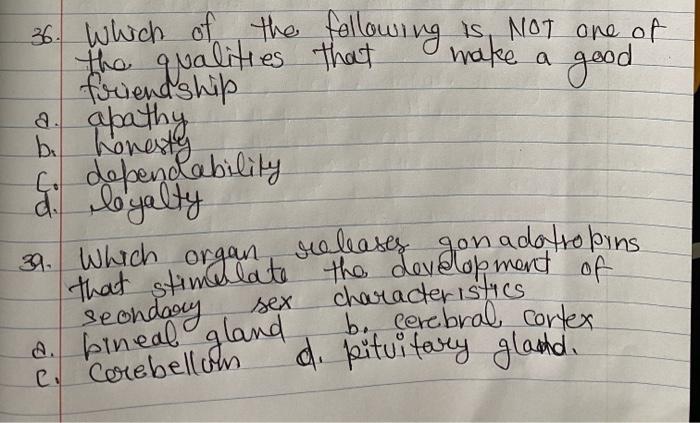 36. Which of the following is NOT one of
the qualities that make a good
friendship
a. apathy
b. honesty
c. dependability
d. loyalty
39. Which organ releases gonadotropins
that stimulate the development of
seondary sex characteristics
a. pineal gland b. cerebral cortex
c. Cerebellum d. pituitary gland.